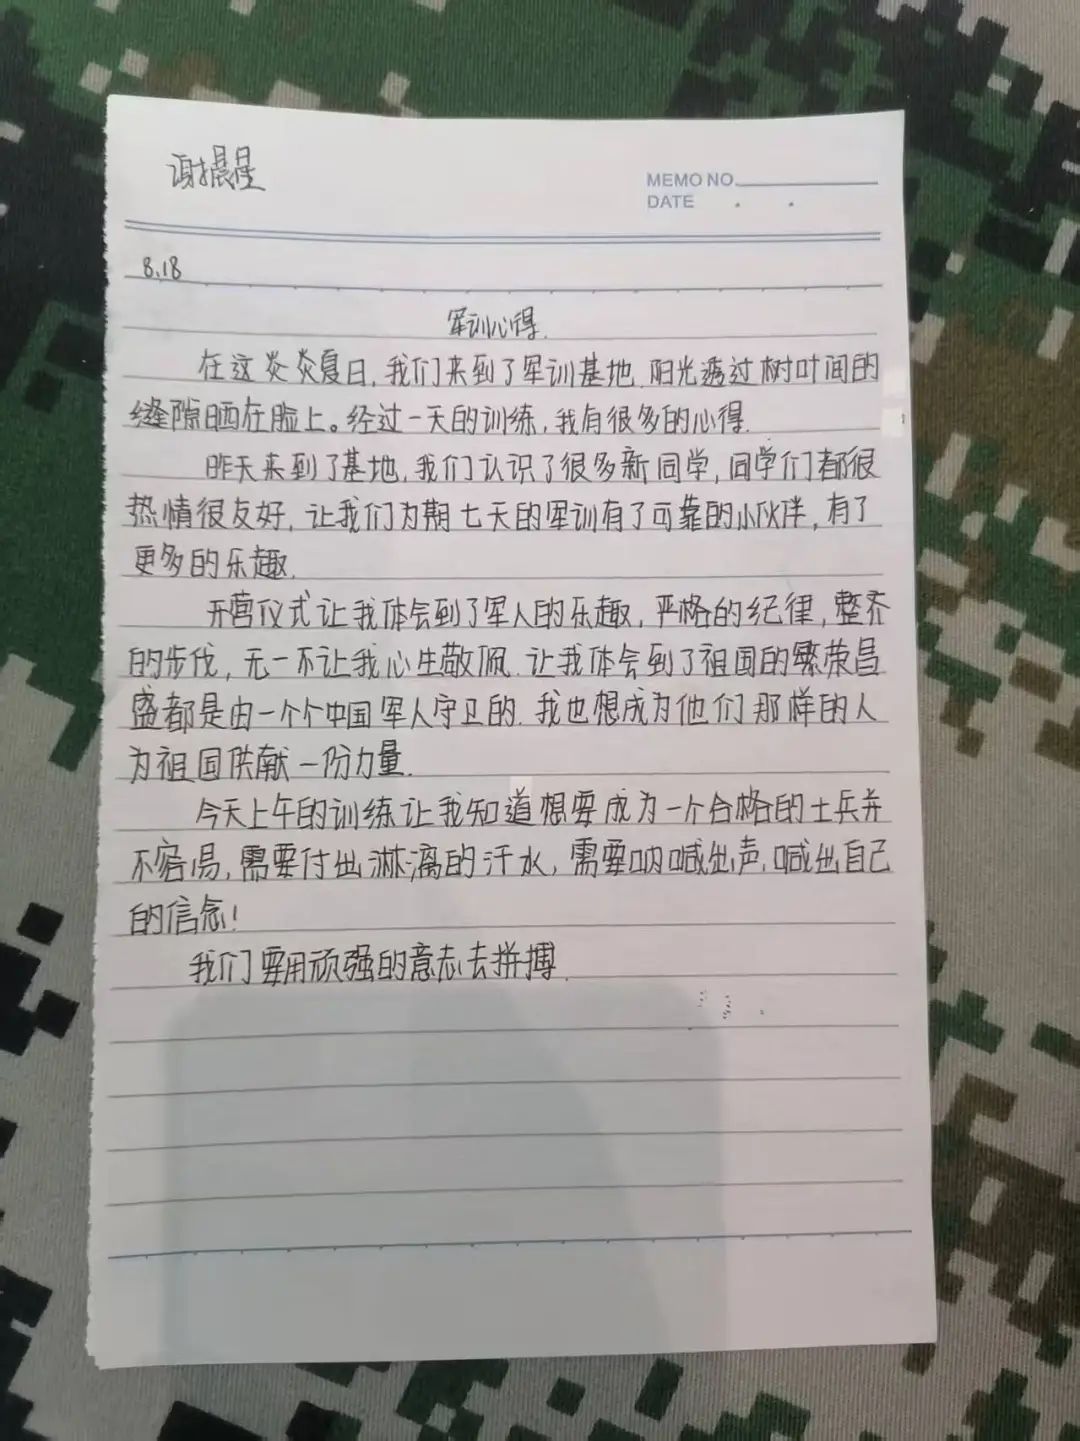 谢晨星
MEMO NO.
DATE . .
8.18
军训心得.
在这炎炎夏日,我们来到了军训基地.阳光透过树叶间的
缝隙晒在脸上。经过一天的训练,我有很多的心得.
昨天来到了基地,我们认识了很多新同学,同学们都很
热情很友好,让我们为期七天的军训有了可靠的小伙伴,有了
更多的乐趣.
开营仪式让我体会到了军人的乐趣,严格的纪律,整齐
的步伐,无一不让我心生敬佩.让我体会到了祖国的繁荣昌
盛都是由一个个中国军人守卫的.我也想成为他们那样的人
为祖国供献一份力量.
今天上午的训练让我知道想要成为一个合格的士兵并
不容易,需要付出淋漓的汗水,需要呐喊出声,喊出自己
的信念!
我们要用顽强的意志去拼搏.